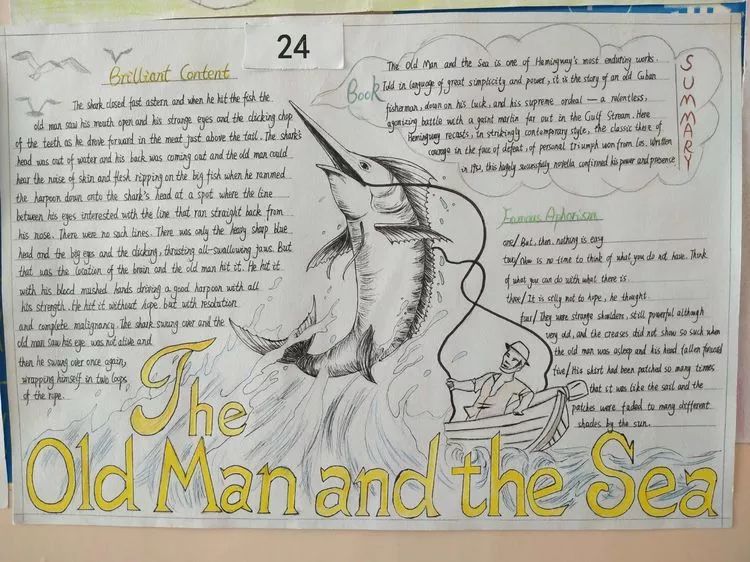 24
Brilliant Content
The shark closed fast astern and when he hit the fish the
old man saw his mouth open and his strange eyes and the clicking chop
of the teeth as he drove forward in the meat just above the tail. The shark's
head was out of water and his back was coming out and the old man could
hear the noise of skin and flesh ripping on the big fish when he rammed
the harpoon down onto the shark's head at a spot where the line
between his eyes interested with the line that ran straight back from
his nose. There were no such lines. There was only the heavy sharp blue
head and the big eyes and the clicking, thrusting all-swallowing jaws. But
that was the location of the brain and the old man hit it. He hit it
with his blood mushed hands driving a good harpoon with all
his strength. He hit it without hope but with resolution
and complete malignancy. The shark swang over and the
old man saw his eye was not alive and
then he swang over once again,
wrapping himself in two loops
of the rope.
Book
SUMMARY
The Old Man and the Sea is one of Hemingway's most enduring works.
Told in language of great simplicity and power, it is the story of an old Cuban
fisherman, down on his luck, and his supreme ordeal — a relentless,
agonizing battle with a gaint marlin far out in the Gulf Stream. Here
Hemingway recasts, in strikingly contemporary style, the classic theme of
courage in the face of defeat, of personal triumph won from los. Written
in 1952, this hugely successfully novella confirmed his power and presence
Famous Aphorism
one/ But, then, nothing is easy
two/ Now is no time to think of what you do not have. Think
of what you can do with what there is.
three/ It is silly not to hope, he thought.
four/ They were strange shoulders, still powerful although
very old, and the creases did not show so much when
the old man was asleep and his head fallen forward
five/ His shirt had been patched so many times
that it was like the sail and the
patches were faded to many different
shades by the sun.
The
Old Man and the Sea